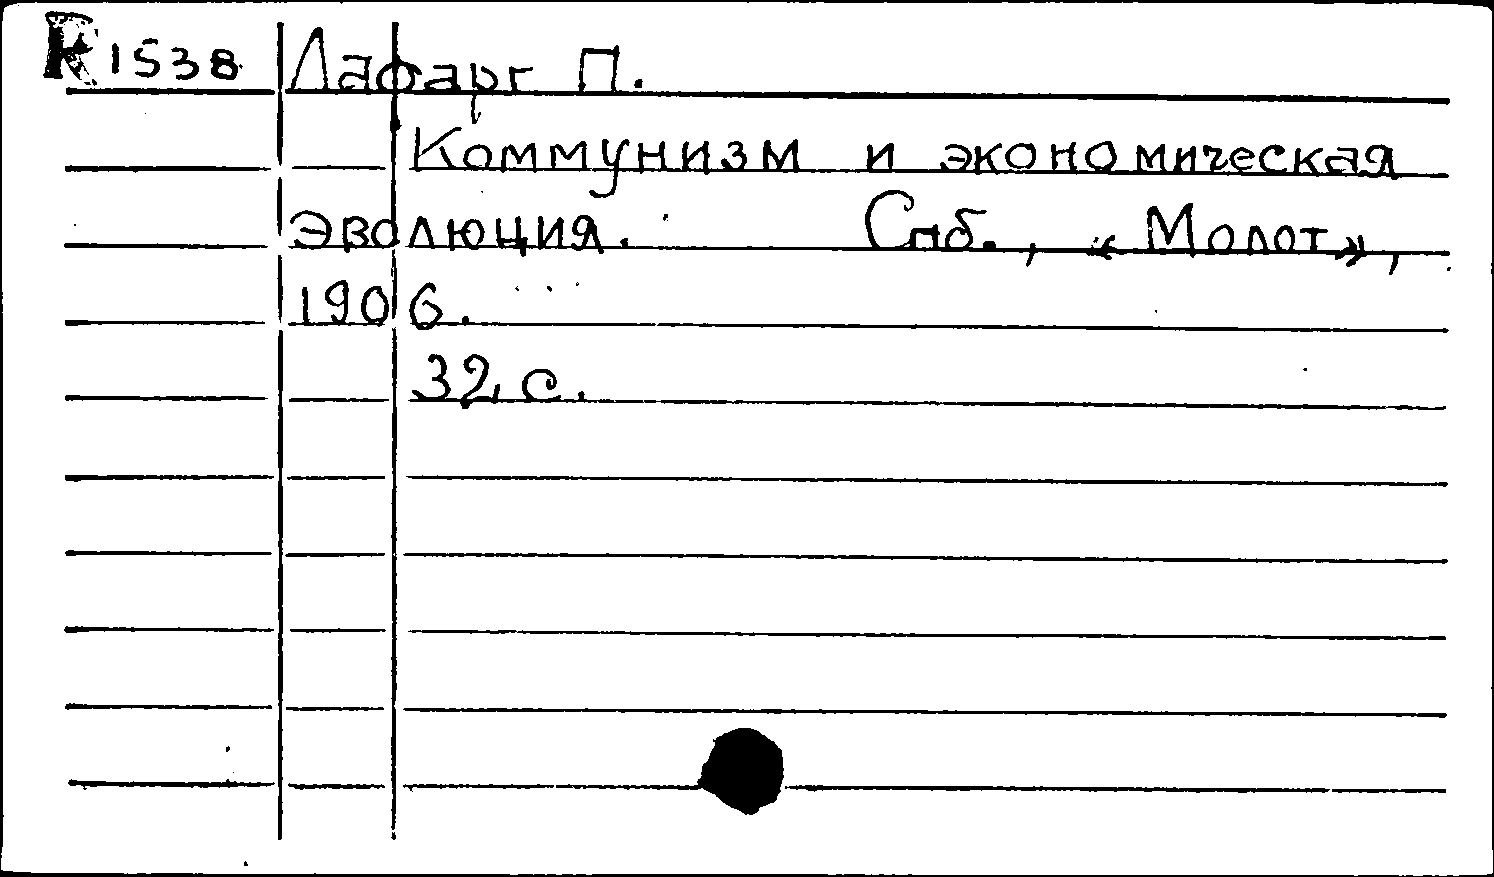 R 1538 Лафарг П.
Коммунизм и экономическая
эволюция. Спб., «Молот»,
1906.
32 с.